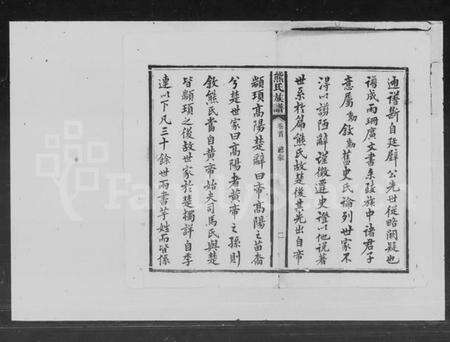 通譜斷自廷辟公先世從略闕疑也
譜成而珊廣文書系葭族中諸君子
意屬為敘為舊史氏論列世家不
得以譾陋辭謹徵遷史證以他說著
世系於篇熊氏故楚後其先出自帝
熊氏族譜 卷首 總敘 一
顓頊高陽楚辭曰帝高陽之苗裔
兮楚世家曰高陽者黃帝之孫則
敘熊氏當自黃帝始夫司馬氏與楚
皆顓頊之後故世家於楚獨詳自季
連以下凡三十餘世而書羋姓而皆係